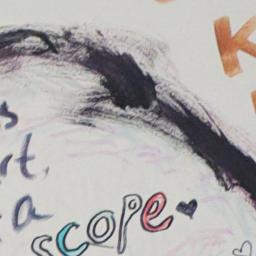 K
s
rt.
a
scope